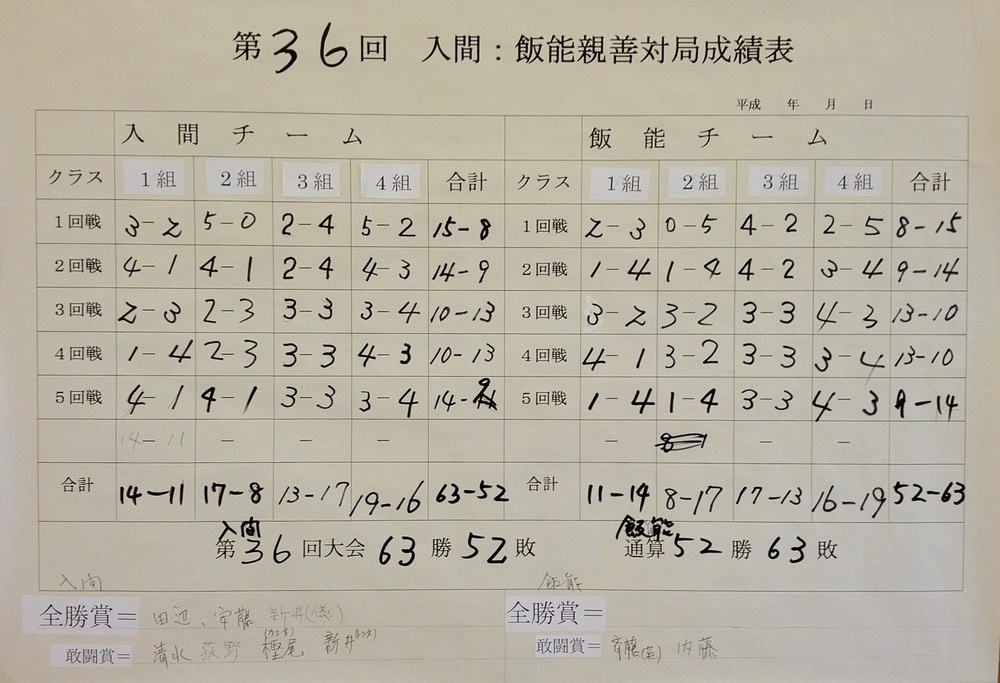 第36回 入間:飯能親善対局成績表
平成 年 月 日
入間チーム 飯能チーム
クラス 1組 2組 3組 4組 合計 クラス 1組 2組 3組 4組 合計
1回戦 3-2 5-0 2-4 5-2 15-8 1回戦 2-3 0-5 4-2 2-5 8-15
2回戦 4-1 4-1 2-4 4-3 14-9 2回戦 1-4 1-4 4-2 3-4 9-14
3回戦 2-3 2-3 3-3 3-4 10-13 3回戦 3-2 3-2 3-3 4-3 13-10
4回戦 1-4 2-3 3-3 4-3 10-13 4回戦 4-1 3-2 3-3 3-4 13-10
5回戦 4-1 4-1 3-3 3-4 14-9 5回戦 1-4 1-4 3-3 4-3 9-14
14-11 - - - - - -
合計 14-11 17-8 13-17 19-16 63-52 合計 11-14 8-17 17-13 16-19 52-63
入間 飯能
第36回大会 63勝 52敗 通算 52勝 63敗
入間 飯能
全勝賞= 田辺、安藤 新井(儀) 全勝賞=
敢闘賞= 清水 荻野 樫尾 新井 敢闘賞= 斉藤 内藤